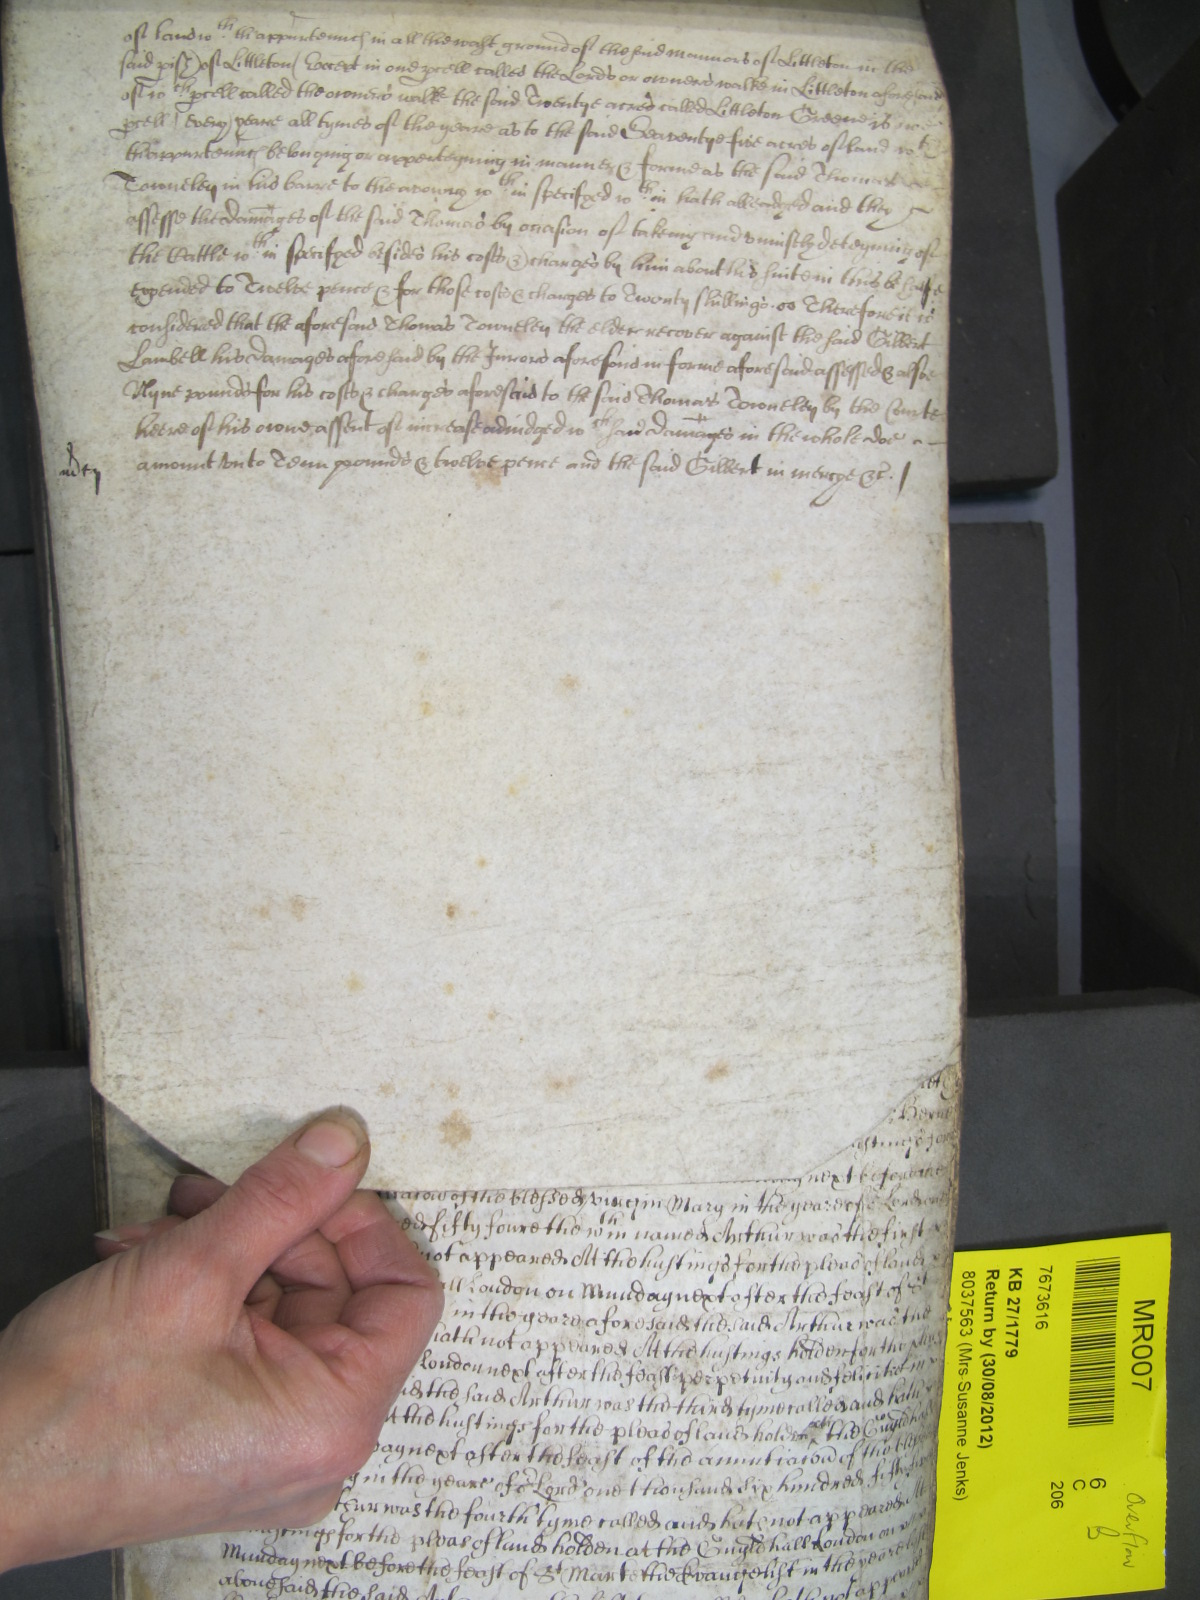 of land wth thappurtenncs in all the wast ground of the said mannors of Littleton in the
said pish of Littleton (Except in one pcell called the Lords or owners walke in Littleton aforesaid
of wch pcell called the owners walke the said Twentye acres called Littleton Greene is
pcell) every yeare all tymes of the yeare as to the said Seaventye five acres of land wth
thappurtenncs belonging or apperteyning in manner & forme as the said Thomas
Towneley in his barre to the avowry wthin specifyed wthin hath alleadged and they
assesse the damages of the said Thomas by occasion of takeing and uniustly deteyning of
the Cattle wthin specifyed besides his costs & charges by him about his suite in this behalfe
expended to Twelve pence & for those costs & charges to Twenty shillings. Therefore it is
considered that the aforesaid Thomas Towneley the elder recover against the said Gilbert
Lambell his damages aforesaid by the Jurors aforesaid in forme aforesaid assessed & alsoe
Nyne pounds for his costs & charges aforesaid to the said Thomas Towneley by the Courte
heere of his owne assent of increase adiudged wch said damages in the whole doe
amount unto Tenn pounds & twelve pence and the said Gilbert in mercye &c.
next before the
of the blessed virgin Mary in the yeare of or Lord
fifty foure the wthin named Arthur was the first
not appeared At the hustings for the pleas of land
all London on Munday next after the feast of St
in the yeare aforesaid the said Arthur was the
hath not appeared At the hustings holden for the
London next after the feast perpetuity and felicitie in
the said Arthur was the third tyme called and hath
At the hustings for the pleas of land holden att the Guyldhall
day next after the feast of the annunciacon of the
in the yeare of or Lord one thousand six hundred fifty
Arthur was the fourth tyme called and hath not appeared At
hustings for the pleas of land holden at the Guyldhall London on
Munday next before the feast of St Marke the Evangelist in the yeare
abovesaid the said
not appeared
MR007
7673616
KB 27/1779
Return by (30/08/2012)
8037563 (Mrs Susanne Jenks)
6
C
206
Overflow
B